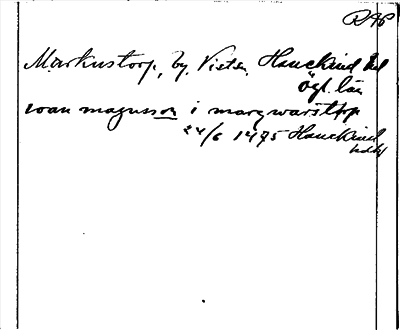 RAP
Markustorp, by, Vists sn, Hanekind hd
Ögl. län
ioan magnusson i margwarsttorp
24/6 1495 Hanekind
hdbl